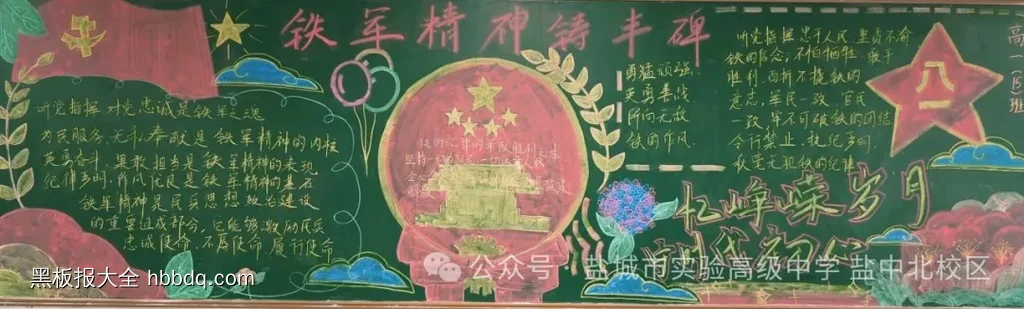 铁军精神铸丰碑
听党指挥 对党忠诚是铁军之魂
为民服务,无私奉献是铁军精神的内核
英勇奋斗,果敢担当是铁军精神的表现
纪律严明,作风优良是铁军精神的基石
铁军精神是民兵思想政治建设
的重要组成部分,它能够激励民兵
忠诚使命,不辱使命,履行使命
勇猛顽强,
英勇善战
所向无敌
铁的作风
听党指挥 忠于人民 坚贞不渝
铁的信念,不怕牺牲 敢于
胜利,百折不挠铁的
意志,军民一致,官民
一致,牢不可破铁的团结
令行禁止,锐纪严明,
秋毫无犯铁的纪律
八一
高一(5)班
忆峥嵘岁月
黑板报大全 hbbdq.com
公众号 · 盐城市实验高级中学 盐中北校区